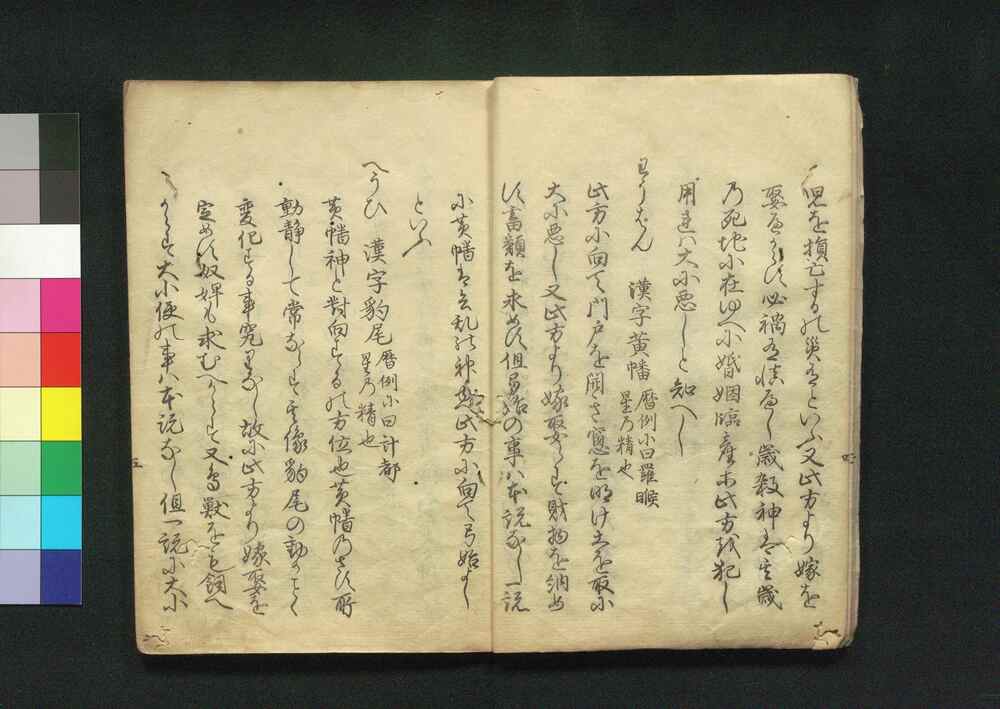 児を損亡するの災有といふ又此方より嫁を
娶るへからす必禍有慎へし歳殺神は其歳
乃死地に在ゆへに婚姻臨産未此方を犯し
用きれハ大に悪しと知へし
わうはん　漢字黄幡　暦例に曰羅睺
星乃精也
此方に向て門戸を開き窓を明け土を取に
大に悪し又此方より嫁娶らす財物を納め
す畜類を求めす但弓始の事ハ本説なし一説
に黄幡は兵乱の神　此方に向て弓始よし
といふ
へうひ　漢字豹尾　暦例に曰計都
星乃精也
黄幡神と對向するの方位也黄幡乃さす所
動静して常ならす其像豹尾の動かことく
変化する事究りなし故に此方より嫁娶を
定めす奴婢も求むへからす又鳥獣をも飼へ
からす大小便の事ハ本説なし但一説に大小